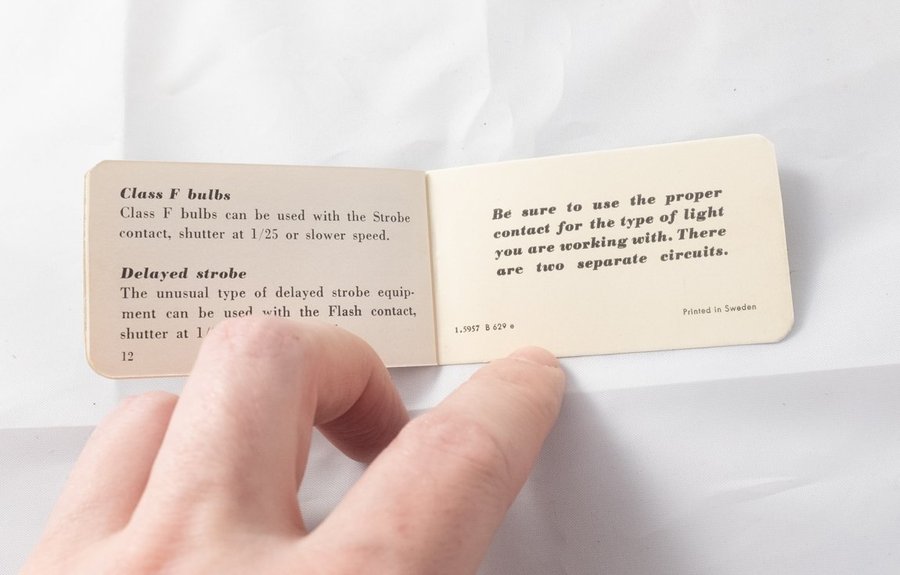 Class F bulbs
Class F bulbs can be used with the Strobe
contact, shutter at 1/25 or slower speed.
Delayed strobe
The unusual type of delayed strobe equip-
ment can be used with the Flash contact,
shutter at
12
Be sure to use the proper
contact for the type of light
you are working with. There
are two separate circuits.
Printed in Sweden
1.5957 B 629 e